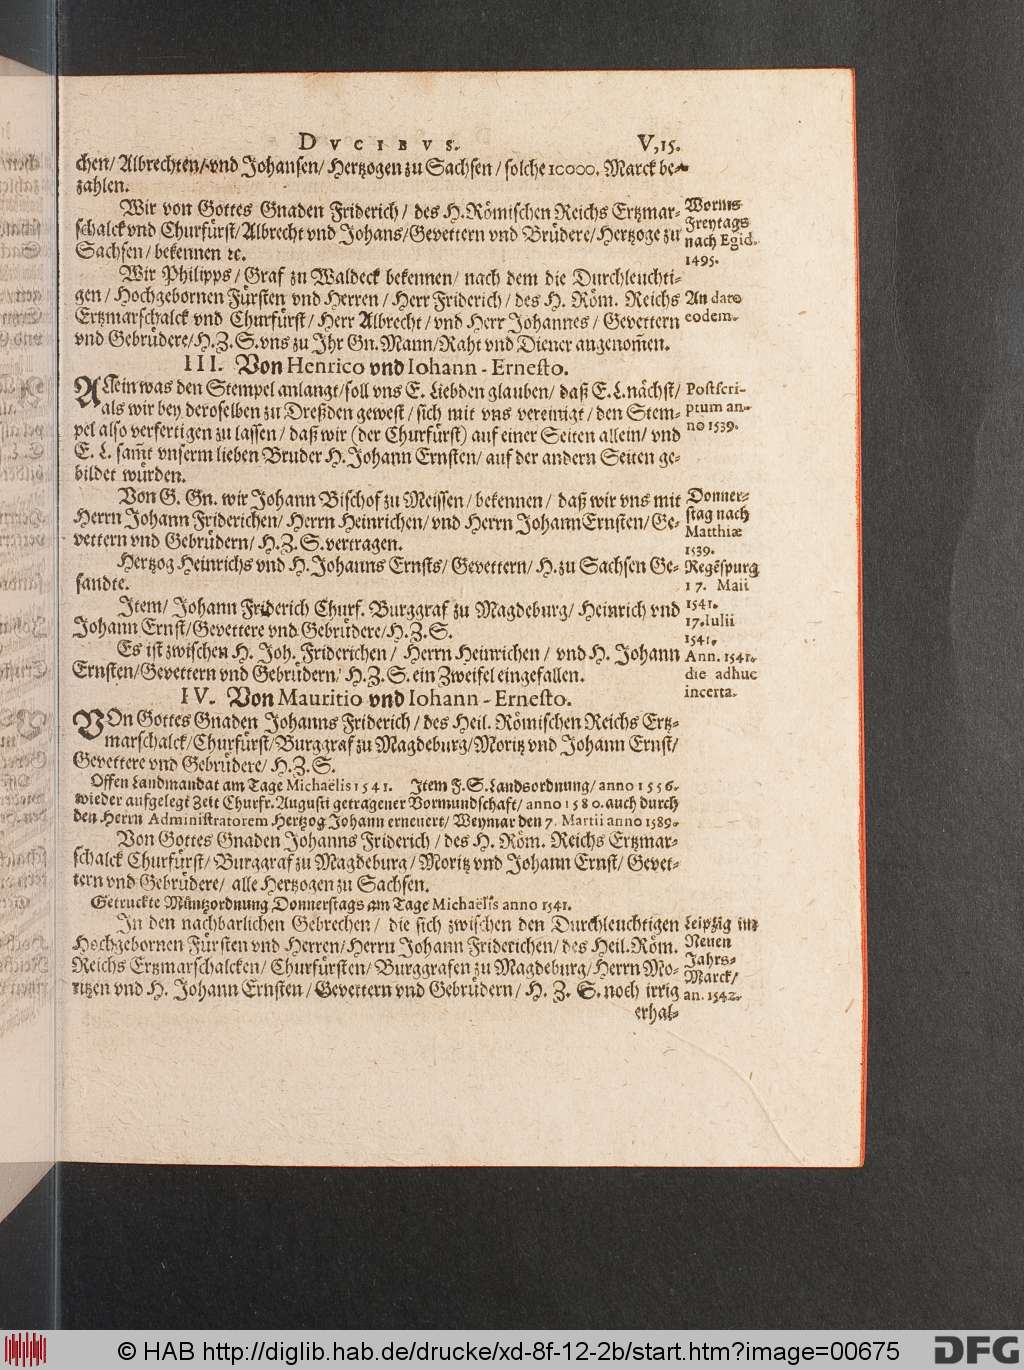 DVCIBVS. V,15.
chen/ Albrechten/ vnd Johansen/ Hertzogen zu Sachsen/ solche 10000. Marck be-
zahlen.
Wir von Gottes Gnaden Friderich/ des H. Römischen Reichs Ertzmar-
schalck vnd Churfürst/ Albrecht vnd Johans/ Gevettern vnd Brüdere/ Hertzoge zu
Sachsen/ bekennen ꝛc.
Worms
Freytags
nach Egid.
1495.
Wir Philipps/ Graf zu Waldeck bekennen/ nach dem die Durchleuchti-
gen/ Hochgebornen Fürsten vnd Herren/ Herr Friderich/ des H. Röm. Reichs
Ertzmarschalck vnd Churfürst/ Herr Albrecht/ vnd Herr Johannes/ Gevettern
vnd Gebrüdere/ H. Z. S. vns zu Jhr Gn. Mann/ Raht vnd Diener angenom̃en.
An dato
eodem.
III. Von Henrico vnd Iohann-Ernesto.
ALlein was den Stempel anlangt/ soll vns E. Liebden glauben/ daß E. L. nächst/
als wir bey deroselben zu Dreßden gewest/ sich mit vns vereinigt/ den Stem-
pel also verfertigen zu lassen/ daß wir (der Churfürst) auf einer Seiten allein/ vnd
E. L. sam̃t vnserm lieben Bruder H. Johann Ernsten/ auf der andern Seiten ge-
bildet würden.
Postscri-
ptum an-
no 1539.
Von G. Gn. wir Johann Bischof zu Meissen/ bekennen/ daß wir vns mit
Herrn Johann Friderichen/ Herrn Heinrichen/ vnd Herrn Johann Ernsten/ Ge-
vettern vnd Gebrüdern/ H. Z. S. vertragen.
Donner-
stag nach
Matthiæ
1539.
Hertzog Heinrichs vnd H. Johanns Ernsts/ Gevettern/ H. zu Sachsen Ge-
sandte.
Regẽspurg
17. Maii
1541.
Item/ Johann Friderich Churf. Burggraf zu Magdeburg/ Heinrich vnd
Johann Ernst/ Gevettere vnd Gebrüdere/ H. Z. S.
17. Iulii
1541.
Es ist zwischen H. Joh. Friderichen/ Herrn Heinrichen/ vnd H. Johann
Ernsten/ Gevettern vnd Gebrüdern/ H. Z. S. ein Zweifel eingefallen.
Ann. 1541.
die adhuc
incerta.
IV. Von Mauritio vnd Iohann-Ernesto.
VOn Gottes Gnaden Johanns Friderich/ des Heil. Römischen Reichs Ertz-
marschalck/ Churfürst/ Burggraf zu Magdeburg/ Moritz vnd Johann Ernst/
Gevettere vnd Gebrüdere/ H. Z. S.
Offen Landmandat am Tage Michaëlis 1541. Item F. S. Landsordnung/ anno 1556.
wieder aufgelegt Zeit Churfr. Augusti getragener Vormundschaft/ anno 1580. auch durch
den Herrn Administratorem Hertzog Johann erneuert/ Weymar den 7. Martii anno 1589.
Von Gottes Gnaden Johanns Friderich/ des H. Röm. Reichs Ertzmar-
schalck Churfürst/ Burggraf zu Magdeburg/ Moritz vnd Johann Ernst/ Gevet-
tern vnd Gebrüdere/ alle Hertzogen zu Sachsen.
Getruckte Müntzordnung Donnerstags am Tage Michaëlis anno 1541.
In den nachbarlichen Gebrechen/ die sich zwischen den Durchleuchtigen
Hochgebornen Fürsten vnd Herren/ Herrn Johann Friderichen/ des Heil. Röm.
Reichs Ertzmarschalcken/ Churfürsten/ Burggrafen zu Magdeburg/ Herrn Mo-
ritzen vnd H. Johann Ernsten/ Gevettern vnd Gebrüdern/ H. Z. S. noch irrig
Leipzig im
Neuen
Jahrs-
Marck/
an. 1542.
erhal-
© HAB http://diglib.hab.de/drucke/xd-8f-12-2b/start.htm?image=00675
DFG